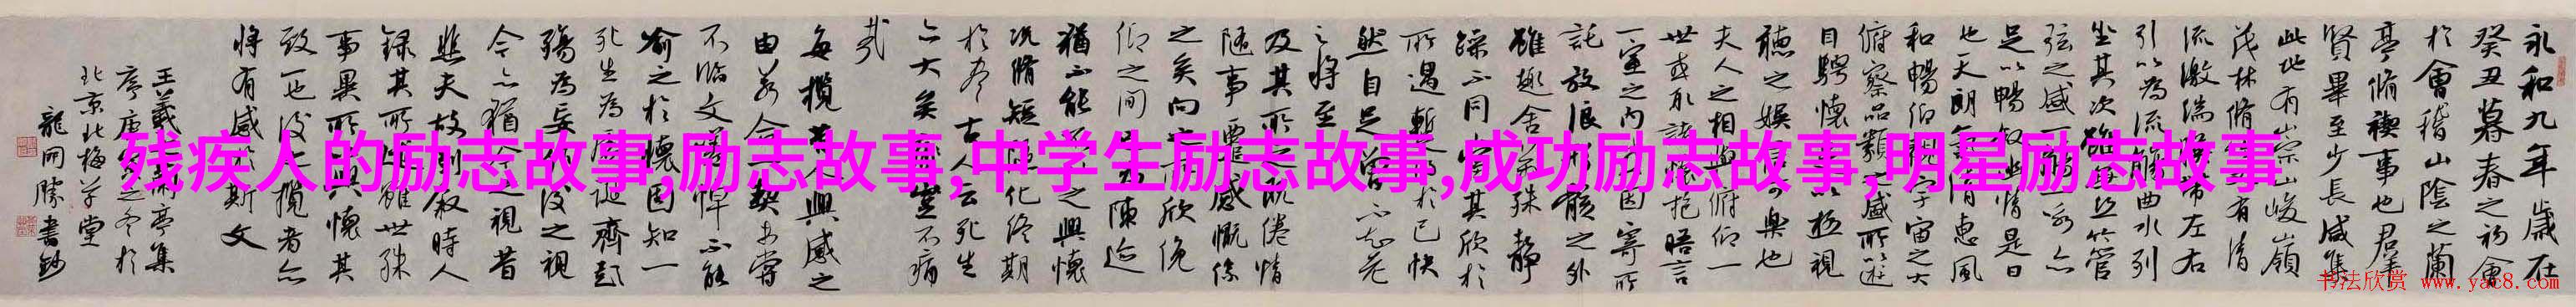 残疾人的励志故事,励志故事,中学生励志故事,成功励志故事,明星励志故事
永和九年歲在
癸丑暮春之初會
於會稽山陰之蘭
亭脩禊事也群
賢畢至少長咸集
此地有崇山峻嶺
茂林脩有清
流激湍帶左右
引以為流觴曲水列
坐其次雖無竹管
弦之盛一觴一詠亦
足以暢敘幽情是日
也天朗清惠風
和暢仰觀宇宙之大
俯察品類之盛所以遊
目騁懷足以極視
聽之娛信可樂也
夫人之相與俯仰一
世或取諸懷抱晤言
一室之內因寄所
託放浪形骸之外
雖趣舍萬殊靜
躁不同當其欣於
所遇暫得於己快
然自足曾不知老
之將至
及其所之既倦情
隨事遷感慨係
之矣向之所欣俛
仰之間已為陳迹
猶不能不以之興懷
況脩短隨化終期
於盡古人云死生
亦大矣豈不痛
哉
每攬昔人興感之
由若合一契未嘗
不臨文嗟悼不能
喻之於懷固知一
死生為虛誕齊彭
殤為妄作後之視
今亦猶今之視昔
悲夫故列敘時人
錄其所述雖世殊
事異所以興懷其
致一也後之攬者亦
將有感於斯文
王羲之蘭亭集
序庚之冬於
北京北梅草堂
龍開勝書鈔
书法欣赏 www.yac8.com